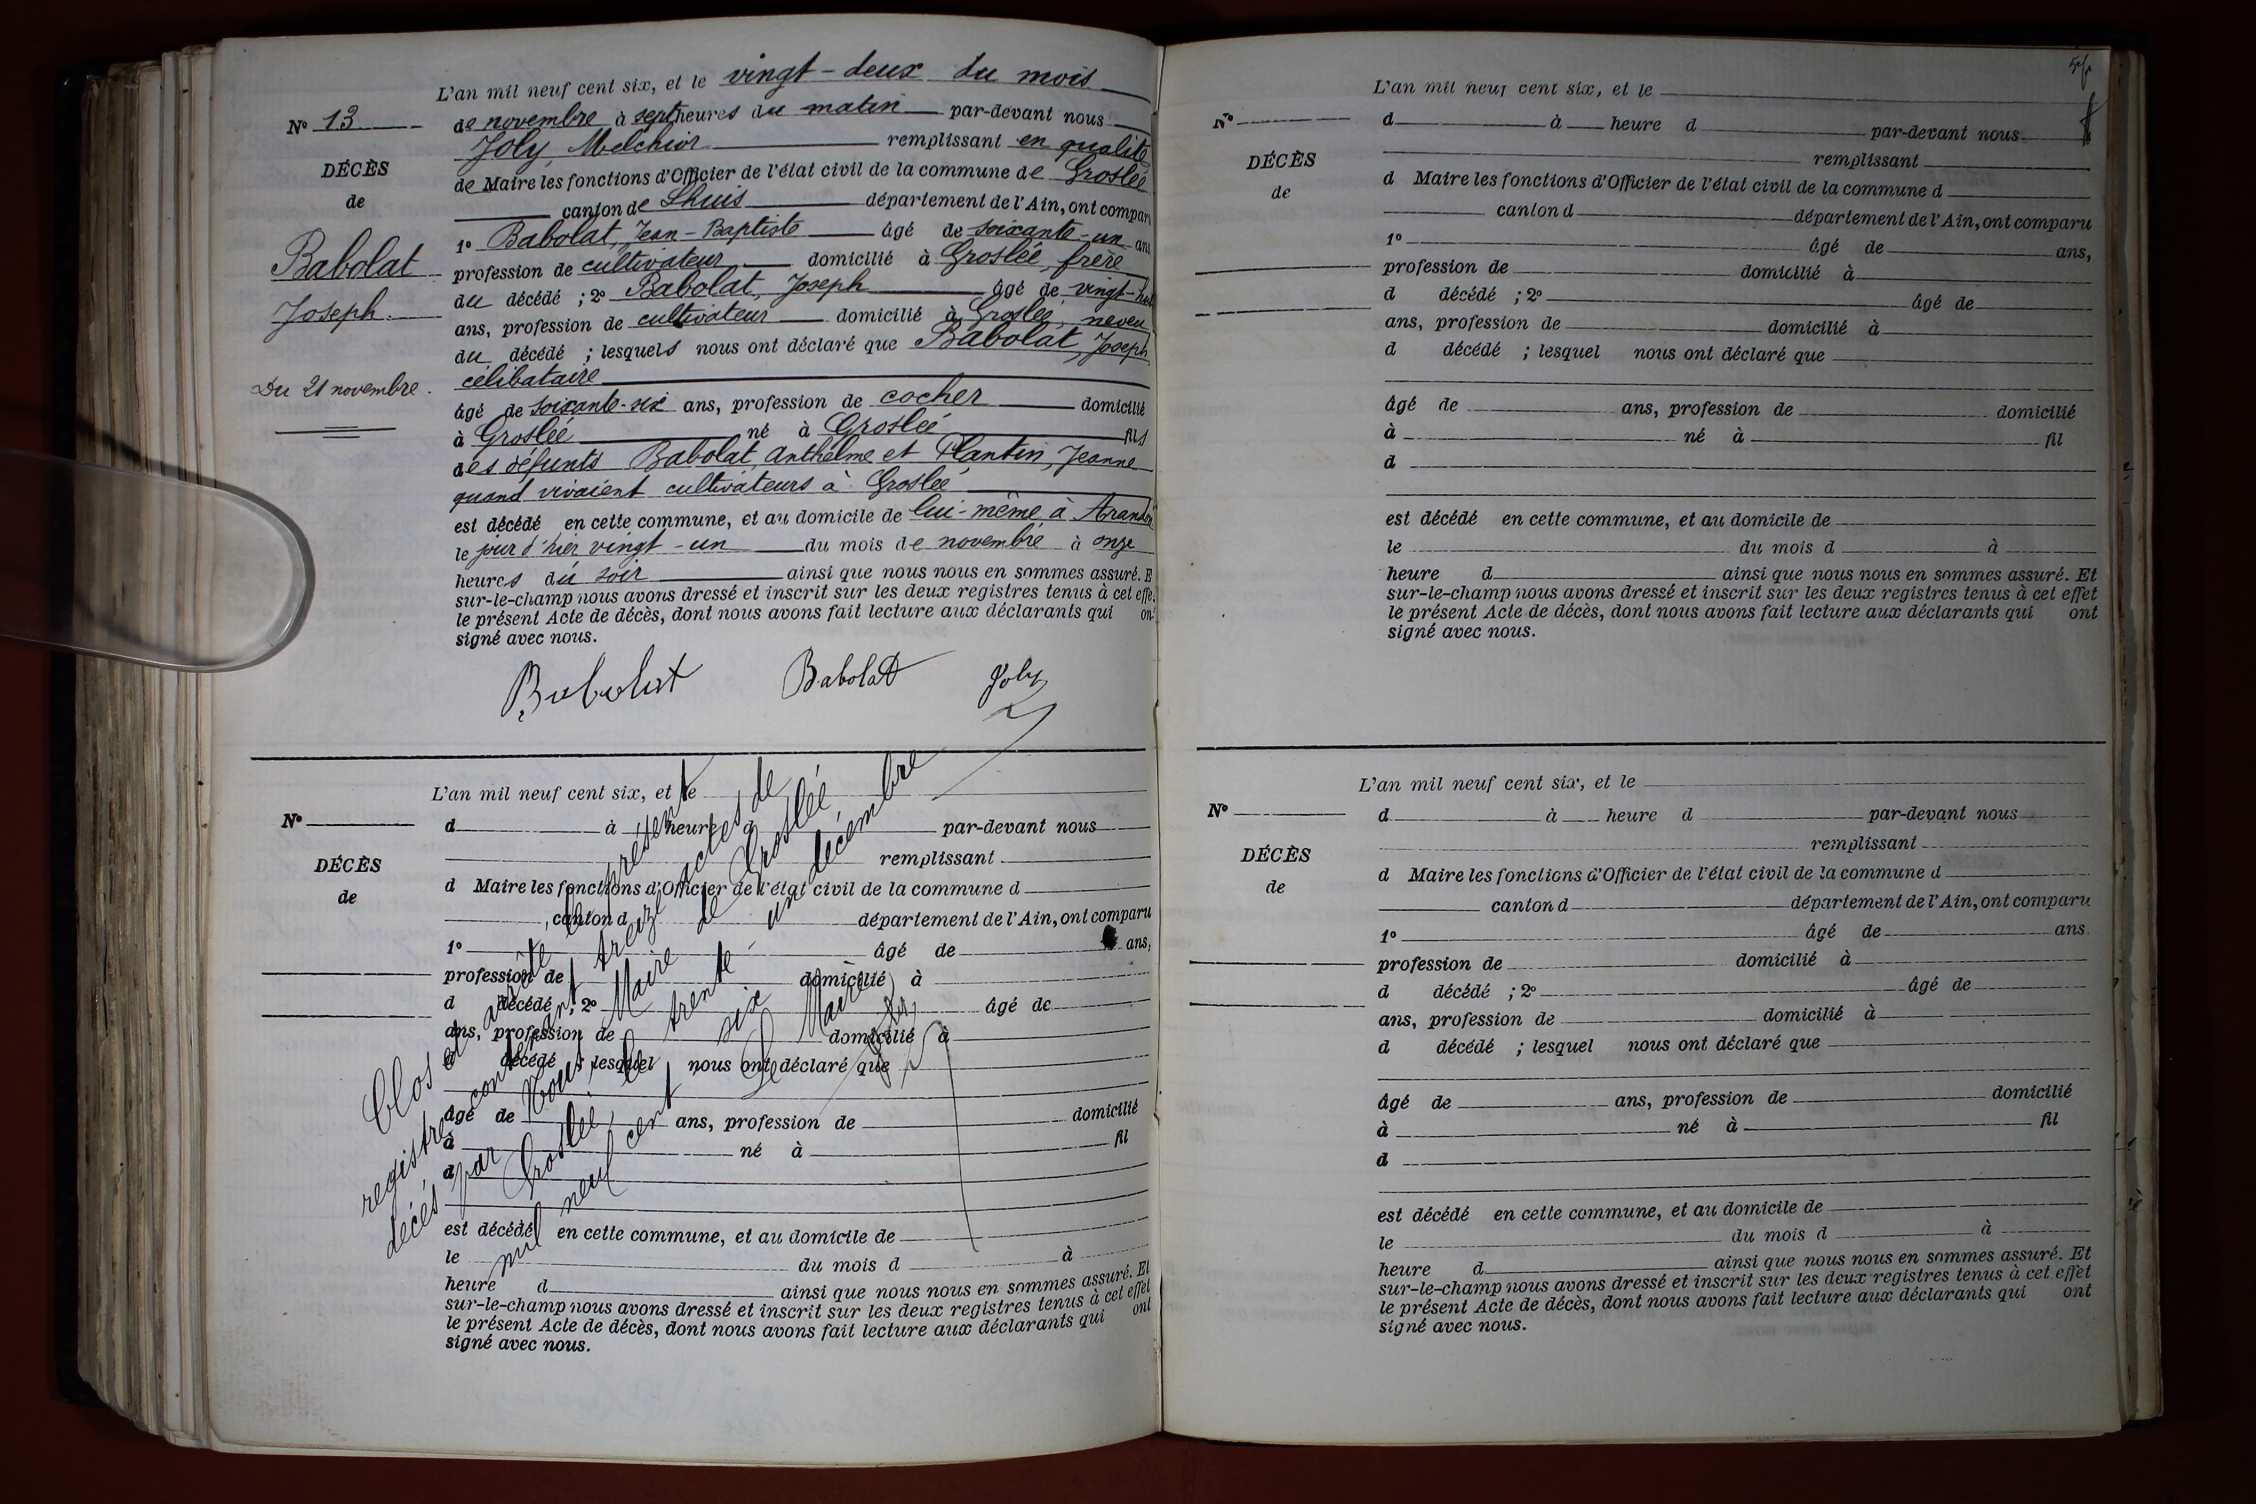 L'an mil neuf cent six, et le vingt-deux du mois
No 13
de novembre à sept heures du matin par-devant nous
Joly, Melchior remplissant en qualité
DÉCÈS
de Maire les fonctions d'Officier de l'état civil de la commune de Groslée
de
canton de Lhuis département de l'Ain, ont compar
1o Babolat, Jean-Baptiste âgé de soixante-un ans
Babolat
profession de cultivateur domicilié à Groslée, frère
du décédé ; 2o Babolat, Joseph âgé de vingt-huit
Joseph.
ans, profession de cultivateur domicilié à Groslée, neveu
du décédé ; lesquels nous ont déclaré que Babolat, Joseph
célibataire
Du 21 novembre.
âgé de soixante-six ans, profession de cocher domicilié
à Groslée né à Groslée fils
des défunts Babolat Anthelme et Plantin, Jeanne
quand vivaient cultivateurs à Groslée
est décédé en cette commune, et au domicile de lui-même à Arandon
le jour d'hier vingt-un du mois de novembre à onze
heures du soir ainsi que nous nous en sommes assuré. E
sur-le-champ nous avons dressé et inscrit sur les deux registres tenus à cet effe
le présent Acte de décès, dont nous avons fait lecture aux déclarants qui on
signé avec nous.
Babolat Babolat Joly
L'an mil neuf cent six, et le
No
d à heure d par-devant nous
remplissant
DÉCÈS
d Maire les fonctions d'Officier de l'état civil de la commune d
de
canton d département de l'Ain, ont comparu
1o âgé de ans,
profession de domicilié à
d décédé ; 2o âgé de
ans, profession de domicilié à
d décédé ; lesquel nous ont déclaré que
âgé de ans, profession de domicilié
à né à fil
d
est décédé en cette commune, et au domicile de
le du mois d à
heure d ainsi que nous nous en sommes assuré. Et
sur-le-champ nous avons dressé et inscrit sur les deux registres tenus à cet effet
le présent Acte de décès, dont nous avons fait lecture aux déclarants qui ont
signé avec nous.
Clos et arrêté le présent
registre contenant treize actes de
décès par Nous, Maire de Groslée
Groslée, le trente-un décembre
mil neuf cent six
Le Maire,
Joly
L'an mil neuf cent six, et le
No
d à heure d par-devant nous
remplissant
DÉCÈS
d Maire les fonctions d'Officier de l'état civil de la commune d
de
canton d département de l'Ain, ont comparu
1o âgé de ans,
profession de domicilié à
d décédé ; 2o âgé de
ans, profession de domicilié à
d décédé ; lesquel nous ont déclaré que
âgé de ans, profession de domicilié
à né à fil
d
est décédé en cette commune, et au domicile de
le du mois d à
heure d ainsi que nous nous en sommes assuré. Et
sur-le-champ nous avons dressé et inscrit sur les deux registres tenus à cet effet
le présent Acte de décès, dont nous avons fait lecture aux déclarants qui ont
signé avec nous.
L'an mil neuf cent six, et le
No
d à heure d par-devant nous
remplissant
DÉCÈS
d Maire les fonctions d'Officier de l'état civil de la commune d
de
canton d département de l'Ain, ont comparu
1o âgé de ans
profession de domicilié à
d décédé ; 2o âgé de
ans, profession de domicilié à
d décédé ; lesquel nous ont déclaré que
âgé de ans, profession de domicilié
à né à fil
d
est décédé en cette commune, et au domicile de
le du mois d à
heure d ainsi que nous nous en sommes assuré. Et
sur-le-champ nous avons dressé et inscrit sur les deux registres tenus à cet effet
le présent Acte de décès, dont nous avons fait lecture aux déclarants qui ont
signé avec nous.